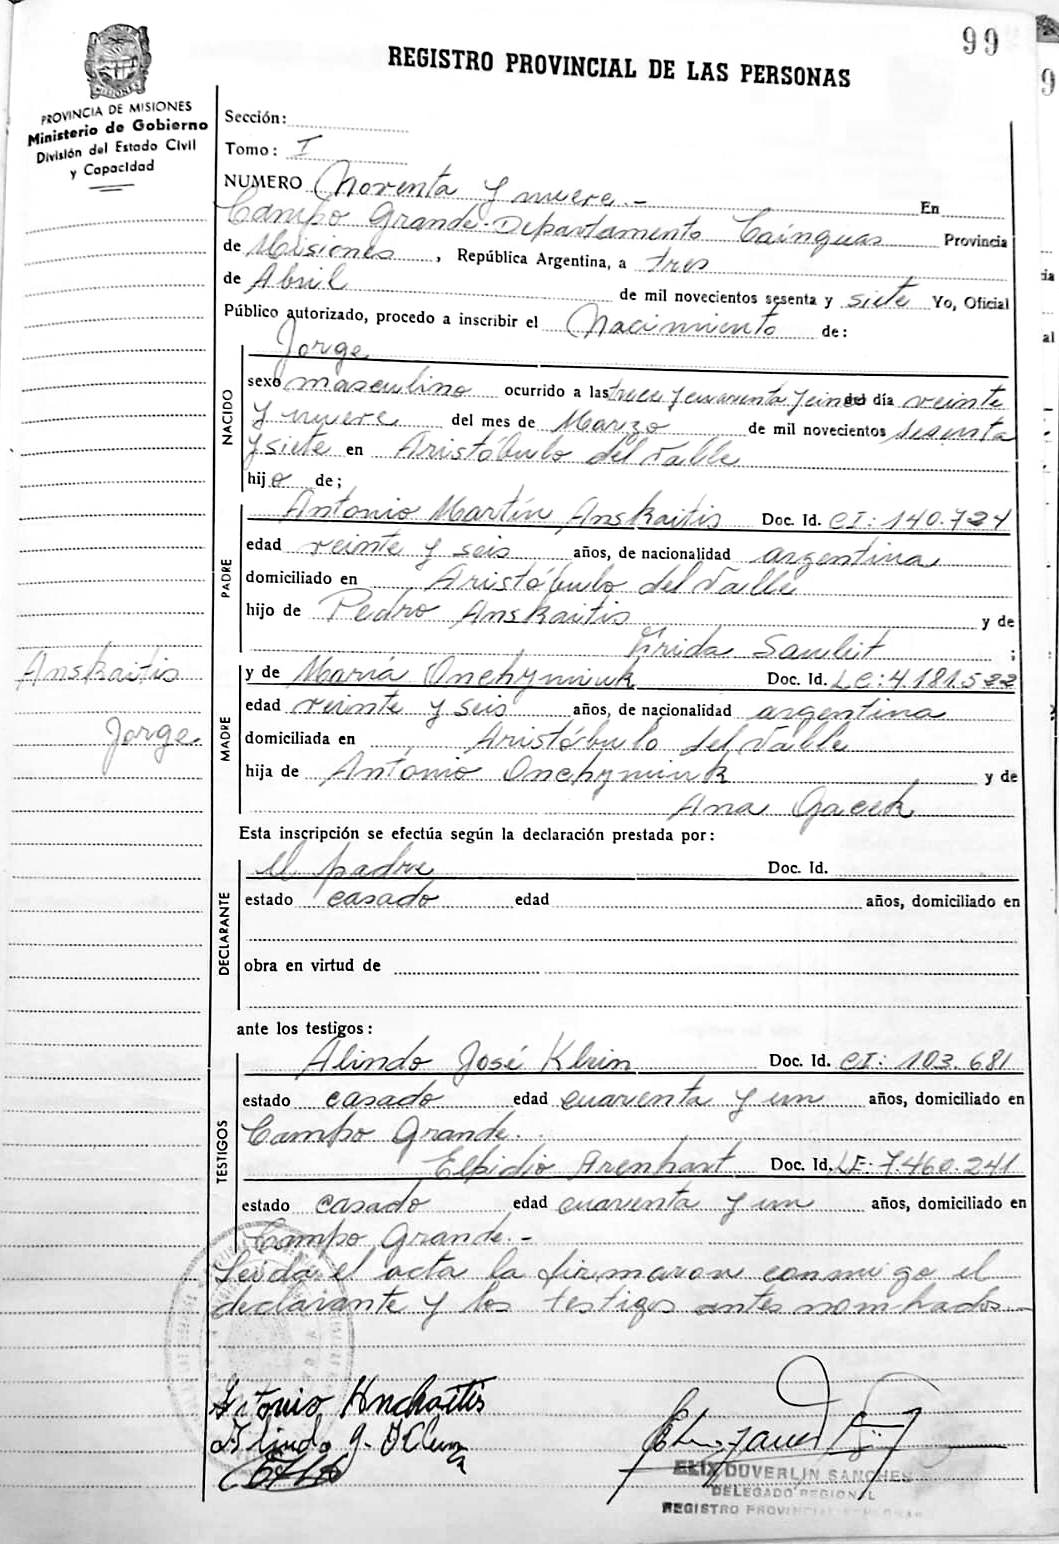 99
REGISTRO PROVINCIAL DE LAS PERSONAS
PROVINCIA DE MISIONES
Ministerio de Gobierno
División del Estado Civil
y Capacidad
Sección:
Tomo: I
NUMERO Noventa y nueve.- En
Campo Grande-Departamento Cainguas Provincia
de Misiones, República Argentina, a tres
de Abril de mil novecientos sesenta y siete Yo, Oficial
Público autorizado, procedo a inscribir el Nacimiento de:
Jorge
NACIDO
sexo masculino ocurrido a las trece y cuarenta y cinco del día veinte
y nueve del mes de Marzo de mil novecientos sesenta
y siete en Aristóbulo del Valle
hijo de;
PADRE
Antonio Martín Anskaitis Doc. Id. CI: 140.724
edad veinte y seis años, de nacionalidad argentina
domiciliado en Aristóbulo del Valle
hijo de Pedro Anskaitis y de
Frida Saulit ;
Anskaitis
Jorge
MADRE
y de María Onchyminuk Doc. Id. LC: 4.181.522
edad veinte y seis años, de nacionalidad argentina
domiciliada en Aristóbulo del Valle
hija de Antonio Onchyminuk y de
Ana Gacek
Esta inscripción se efectúa según la declaración prestada por:
DECLARANTE
el padre Doc. Id.
estado casado edad años, domiciliado en
obra en virtud de
ante los testigos:
TESTIGOS
Alindo José Klein Doc. Id. CI: 103.681
estado casado edad cuarenta y un años, domiciliado en
Campo Grande.
Elpidio Arenhart Doc. Id. LE: 7.460.241
estado casado edad cuarenta y un años, domiciliado en
Campo Grande.-
Leída el acta la firmaron conmigo el
declarante y los testigos antes nombrados.-
Antonio Anskaitis
Alindo J. Klein
ELIX DUVERLIN SANCHES
DELEGADO REGIONAL
REGISTRO PROVINCIAL